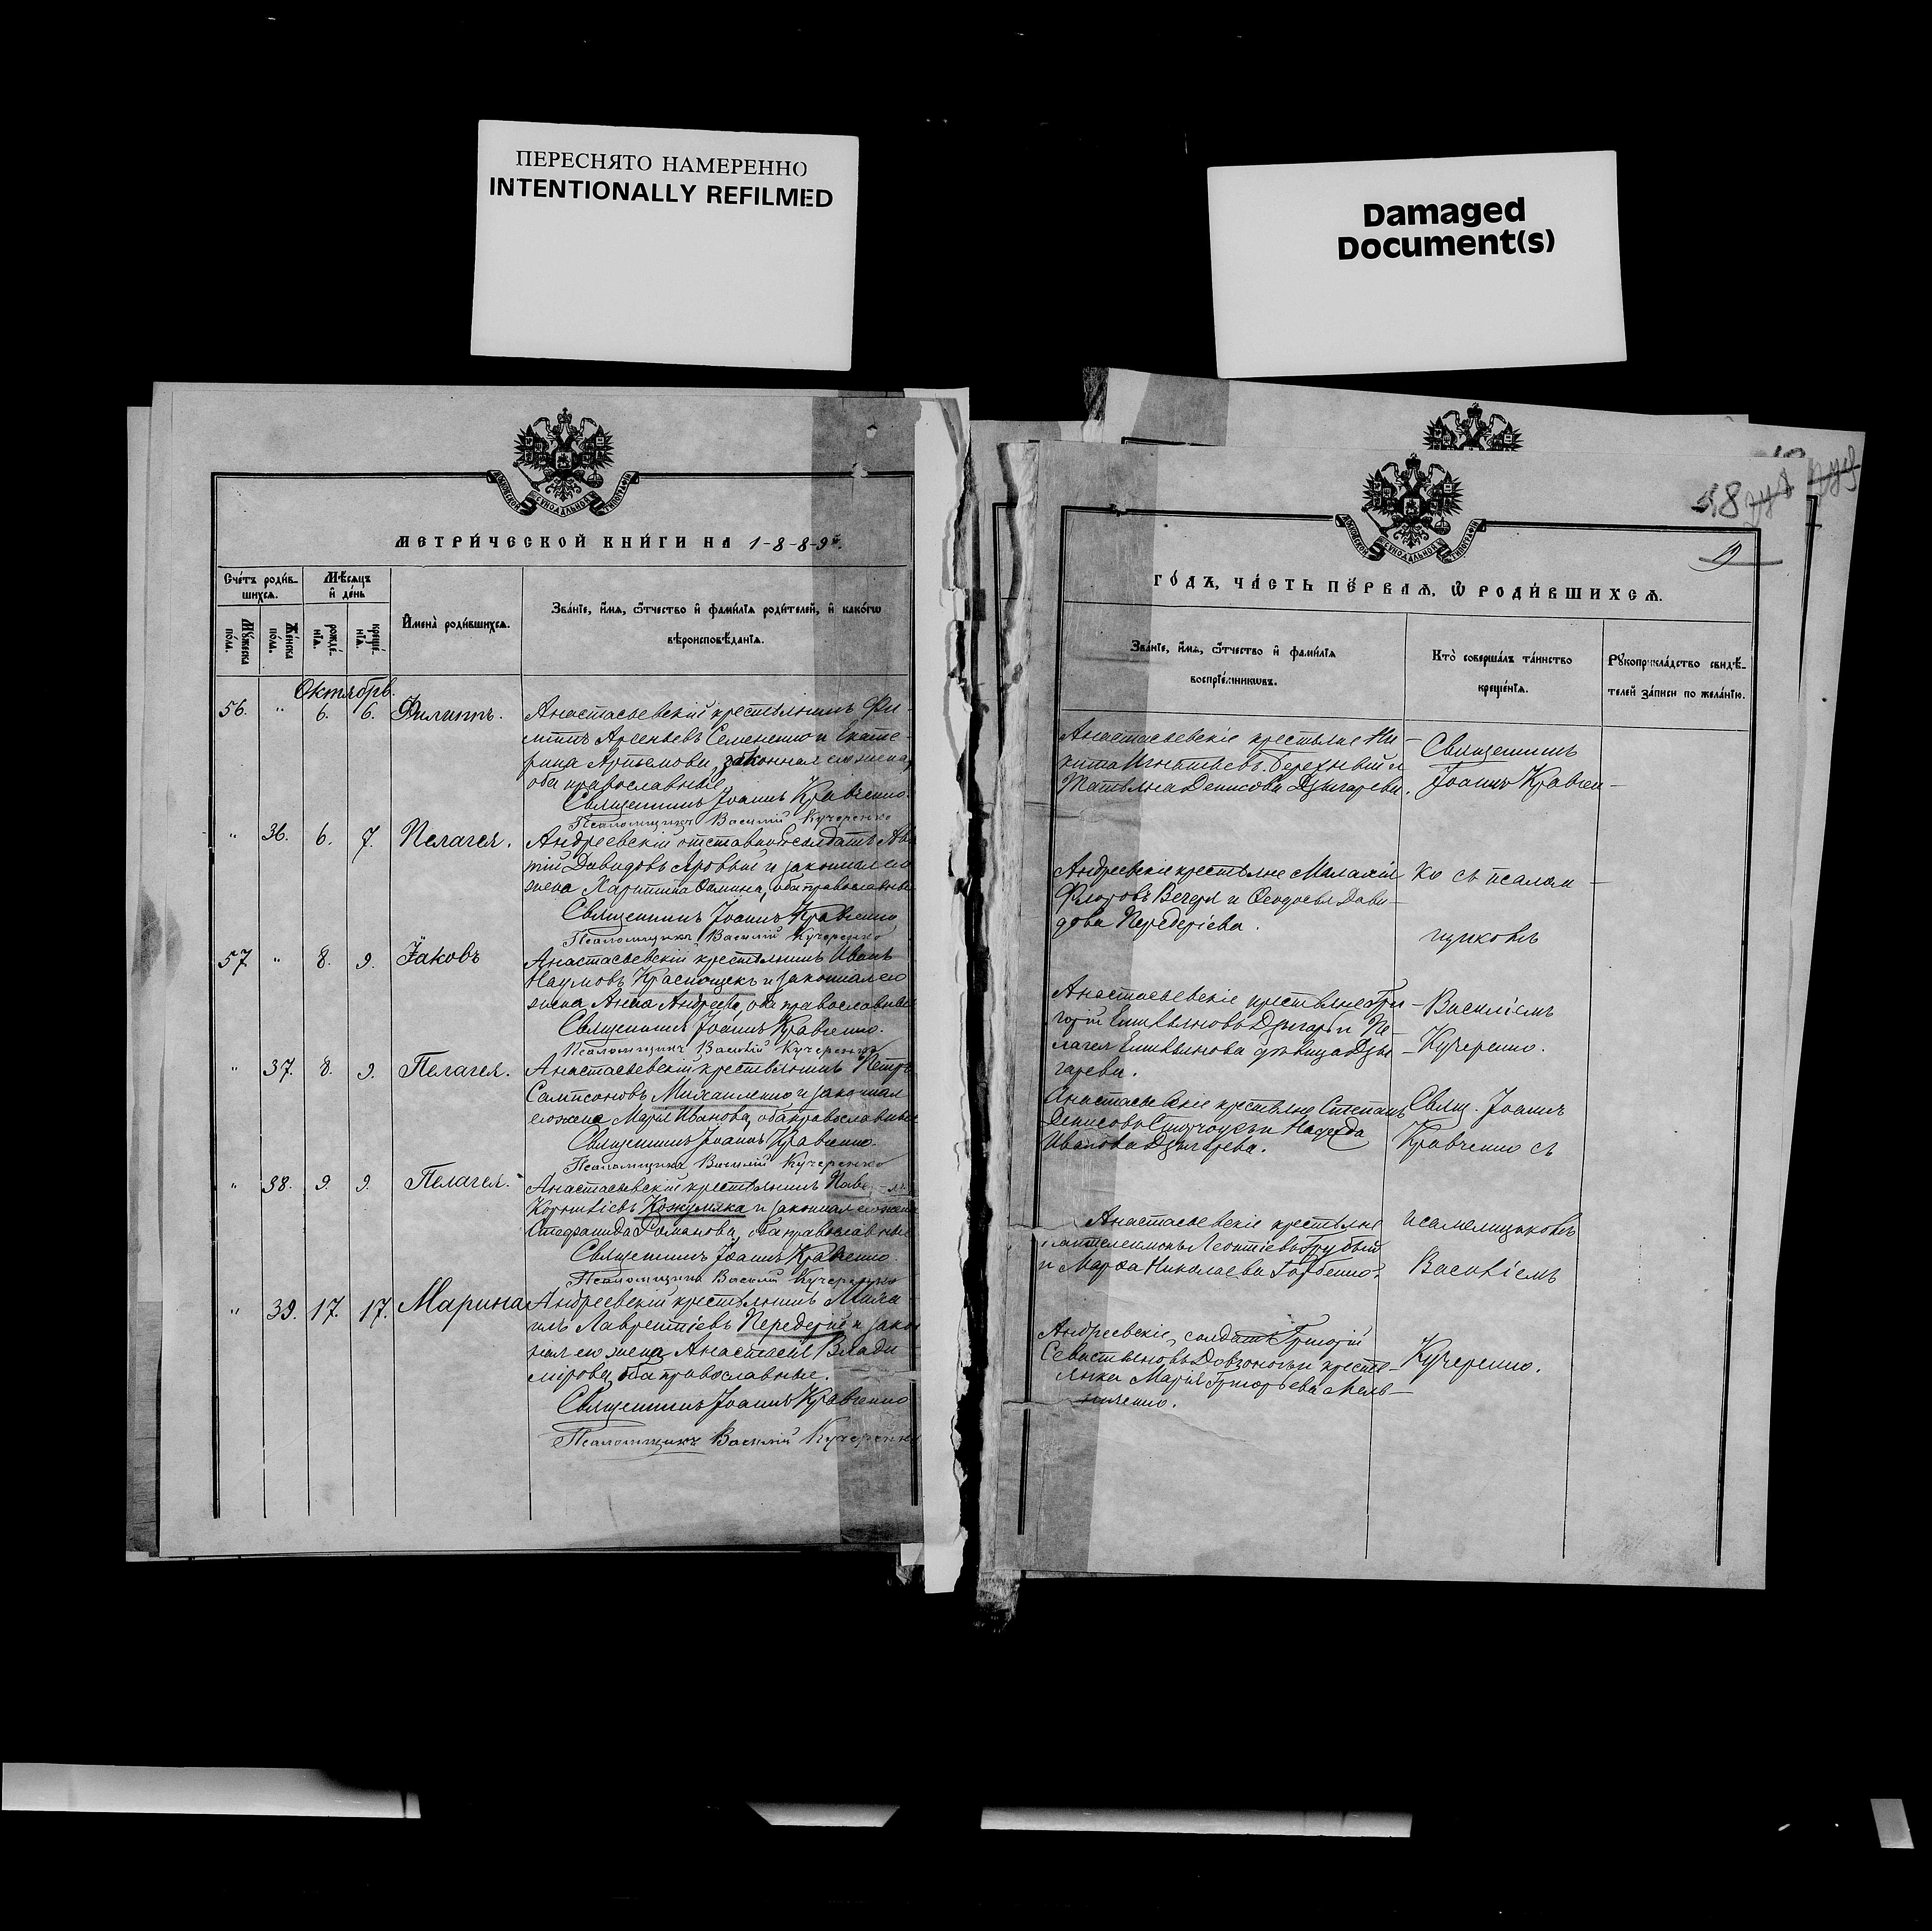 ПЕРЕСНЯТО НАМЕРЕННО
INTENTIONALLY REFILMED
Damaged
Document(s)
МОСКОВСКОЙ СѴНОДАЛЬНОЙ ТИПОГРАФІИ
МЕТРИ́ЧЕСКОЙ КНИ́ГИ НА 1-8-8-9й.
Сче́тъ роди́в-
шихсѧ.
Мѣ́сѧцъ
и҆ де́нь
Мꙋ́жеска
по́ла.
Же́нска
по́ла.
рожде́-
нїѧ.
креще́-
нїѧ.
И҆мена̀ роди́вшихсѧ.
Зва́нїе, и҆́мѧ, ѻ҆́тчество и҆ фами́лїѧ роди́телей, и҆ како́гѡ
вѣроисповѣ́данїѧ.
Октябрь.
56. " 6. 6. Филиппъ.
Анастасьевскій крестьянинъ Фи-
липпъ Арсеньевъ Семененко и Екате-
рина Артемова, законная его жена,
оба православные
Священникъ Іоаннъ Кравченко.
Псаломщикъ Василій Кучеренко
" 36. 6. 7. Пелагея.
Андреевскій отставной солдатъ
Давидовъ Яровый и законная его
жена Харитина Фомина, оба православные
Священникъ Іоаннъ Кравченко
Псаломщикъ Василій Кучеренко
57 " 8. 9. Іаковъ
Анастасьевскій крестьянинъ Иванъ
Наумовъ Краснощекъ и законная его
жена Анна Андреева, оба православные
Священникъ Іоаннъ Кравченко.
Псаломщикъ Василій Кучеренко
" 37. 8. 9. Пелагея.
Анастасьевскій крестьянинъ Петръ
Сампсоновъ Михайленко и законная
его жена Марія Иванова, оба православные
Священникъ Іоаннъ Кравченко.
Псаломщикъ Василій Кучеренко
" 38. 9. 9. Пелагея.
Анастасьевскій крестьянинъ
Корнилієвъ Кожумяка и законная его жена
Стефанида Романова, оба православные
Священникъ Іоаннъ Кравченко.
Псаломщикъ Василій Кучеренко
" 39. 17. 17. Марина
Андреевскій крестьянинъ Миха-
илъ Лаврентіевъ Передерій и закон
ная его жена Анастасія Влади
мірова, оба православные.
Священникъ Іоаннъ Кравченко
Псаломщикъ Василій Кучеренко
МОСКОВСКОЙ СѴНОДАЛЬНОЙ ТИПОГРАФІИ
ГО́ДЪ, ЧА́СТЬ ПЕ́РВАѦ, Ѽ РОДИ́ВШИХСѦ.
Зва́нїе, и҆́мѧ, ѻ҆́тчество и҆ фами́лїѧ
воспрїе́мникѡвъ.
Кто̀ соверша́лъ та́инство
креще́нїѧ.
Рꙋкоприкла́дство свидѣ́-
телей за́писи по жела́нїю.
Анастасьевскіе крестьяне Ни-
кита Игнатьевъ Бережный и
Татьяна Денисова Дзыгарева.
Священникъ
Іоаннъ Кравчен-
Андреевскіе крестьяне Малахій
Флоровъ Вечеря и Ѳеодосья Дави-
дова Передеріева.
ко съ псалом-
щикомъ
Анастасьевскіе крестьяне Гри-
горій Емельяновъ Дзыгарь и Пе-
лагея Емельянова дѣвица Дзы-
гарева.
Василіемъ
Кучеренко.
Анастасьевскіе крестьяне Степанъ
Денисовъ и Надежда
Иванова Дзыгарева.
Свящ. Іоаннъ
Кравченко съ
Анастасьевскіе крестьяне
Пантелеимонъ Леонтіевъ Грубый
и Марѳа Николаева Горбенко.
псаломщикомъ
Василіемъ
Андреевскіе, солдатъ Григорій
Севастьяновъ Довгоногъ и кресть-
янка Марія Григорьева Мель-
ниченко.
Кучеренко.